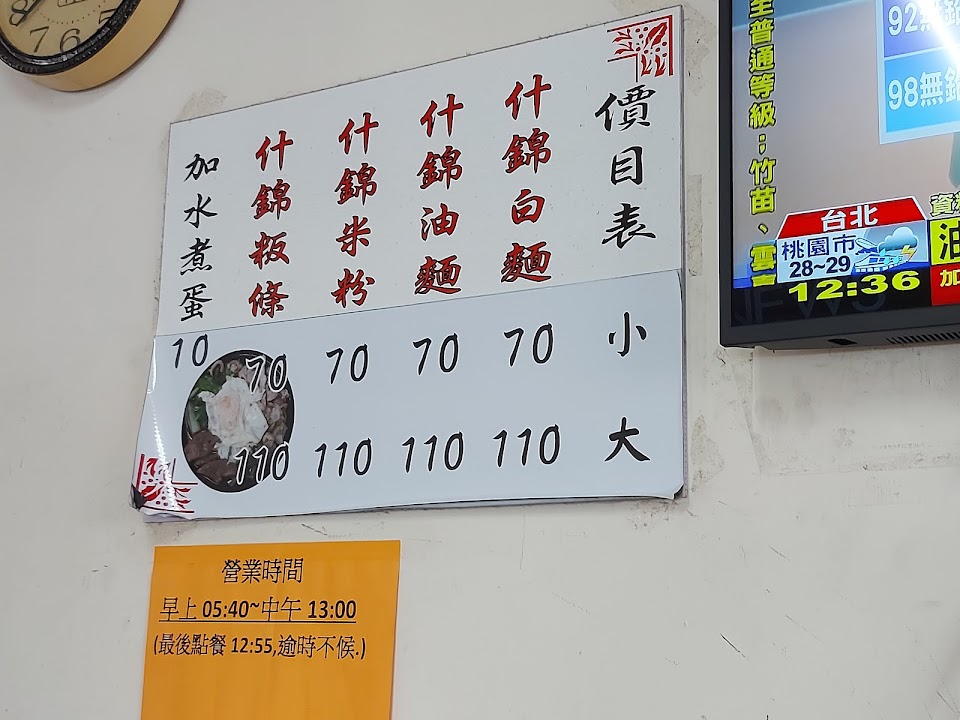 價目表
什錦白麵
什錦油麵
什錦米粉
什錦粄條
加水煮蛋
小
70
70
70
70
10
大
110
110
110
110
營業時間
早上 05:40~中午 13:00
(最後點餐 12:55,逾時不候.)
7
6
5
至普通等級；竹苗、雲
92無鉛
98無鉛
台北
桃園市
28~29
12:36
油
加